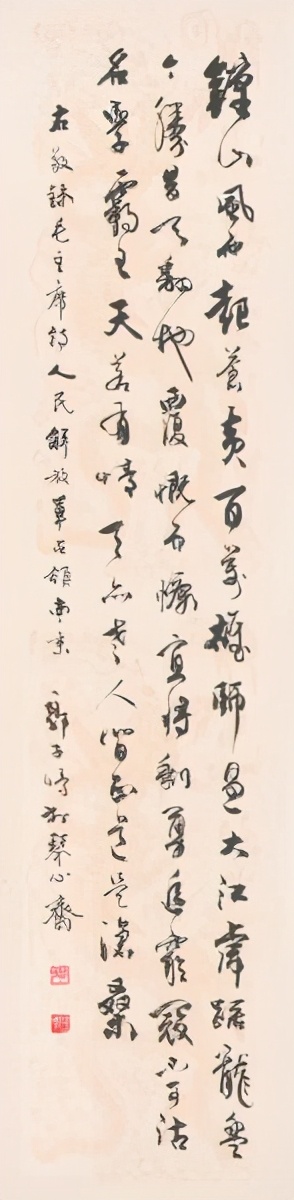 鐘山風雨起蒼黃百萬雄師過大江虎踞龍盤
今勝昔天翻地覆慨而慷宜將剩勇追窮寇不可沽
名學霸王天若有情天亦老人間正道是滄桑
右敬錄毛主席詩人民解放軍占領南京 郭子於琴心齋